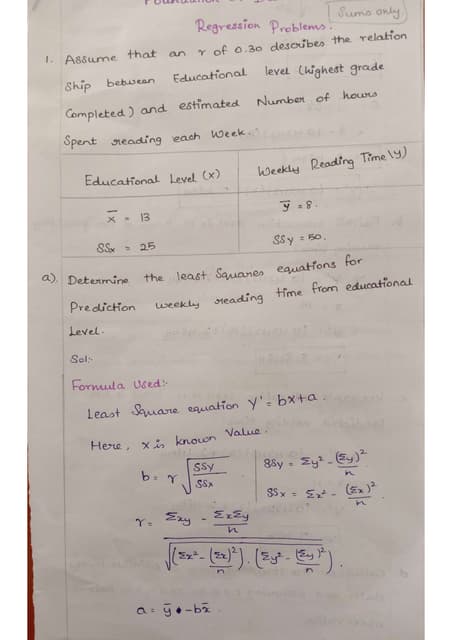 Sums only
Regression Problems.
1. Assume that an r of 0.30 describes the relation
Ship between Educational level (highest grade
Completed) and estimated Number of hours
Spent reading each Week.
Educational Level (x) Weekly Reading Time (y)
x̄ = 13 ȳ = 8.
SSx = 25 SSy = 50.
a). Determine the least Squares equations for
Prediction weekly reading time from educational
Level.
Sol:-
Formula Used:-
Least Square equation Y' = bx+a.
Here, x is known Value.
b = r √(SSy/SSx) SSy = Σy² - (Σy)²/n
SSx = Σx² - (Σx)²/n
r = Σxy - ΣxΣy/n
√((Σx² - (Σx)²/n) . (Σy² - (Σy)²/n)) .
a = ȳ - bx̄